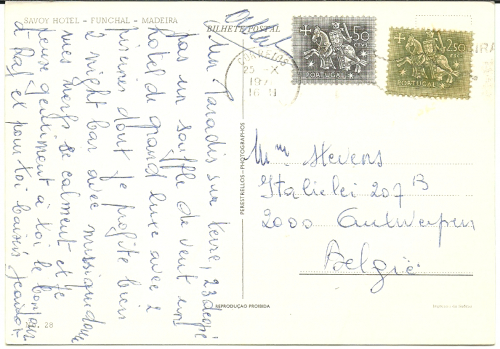 SAVOY HOTEL - FUNCHAL - MADEIRA
BILHETE POSTAL
Un Paradis sur terre, 23 degré
pas un souffle de vent un
hotel de grand luxe avec 2
piscines dont je profite bien
1 night bar avec musique douce
mes nerfs se calment et je
pense gentiment à toi le bonjour
à Raf et pour toi baisers
28
PERESTRELLOS - PHOTOGRAPHOS
REPRODUÇÃO PROIBIDA
CORREIOS
25 X
50
CTVS
PORTUGAL
2$50
PORTUGAL
Mme Stevens
Italiëlei 207 B
2000 Antwerpen
België